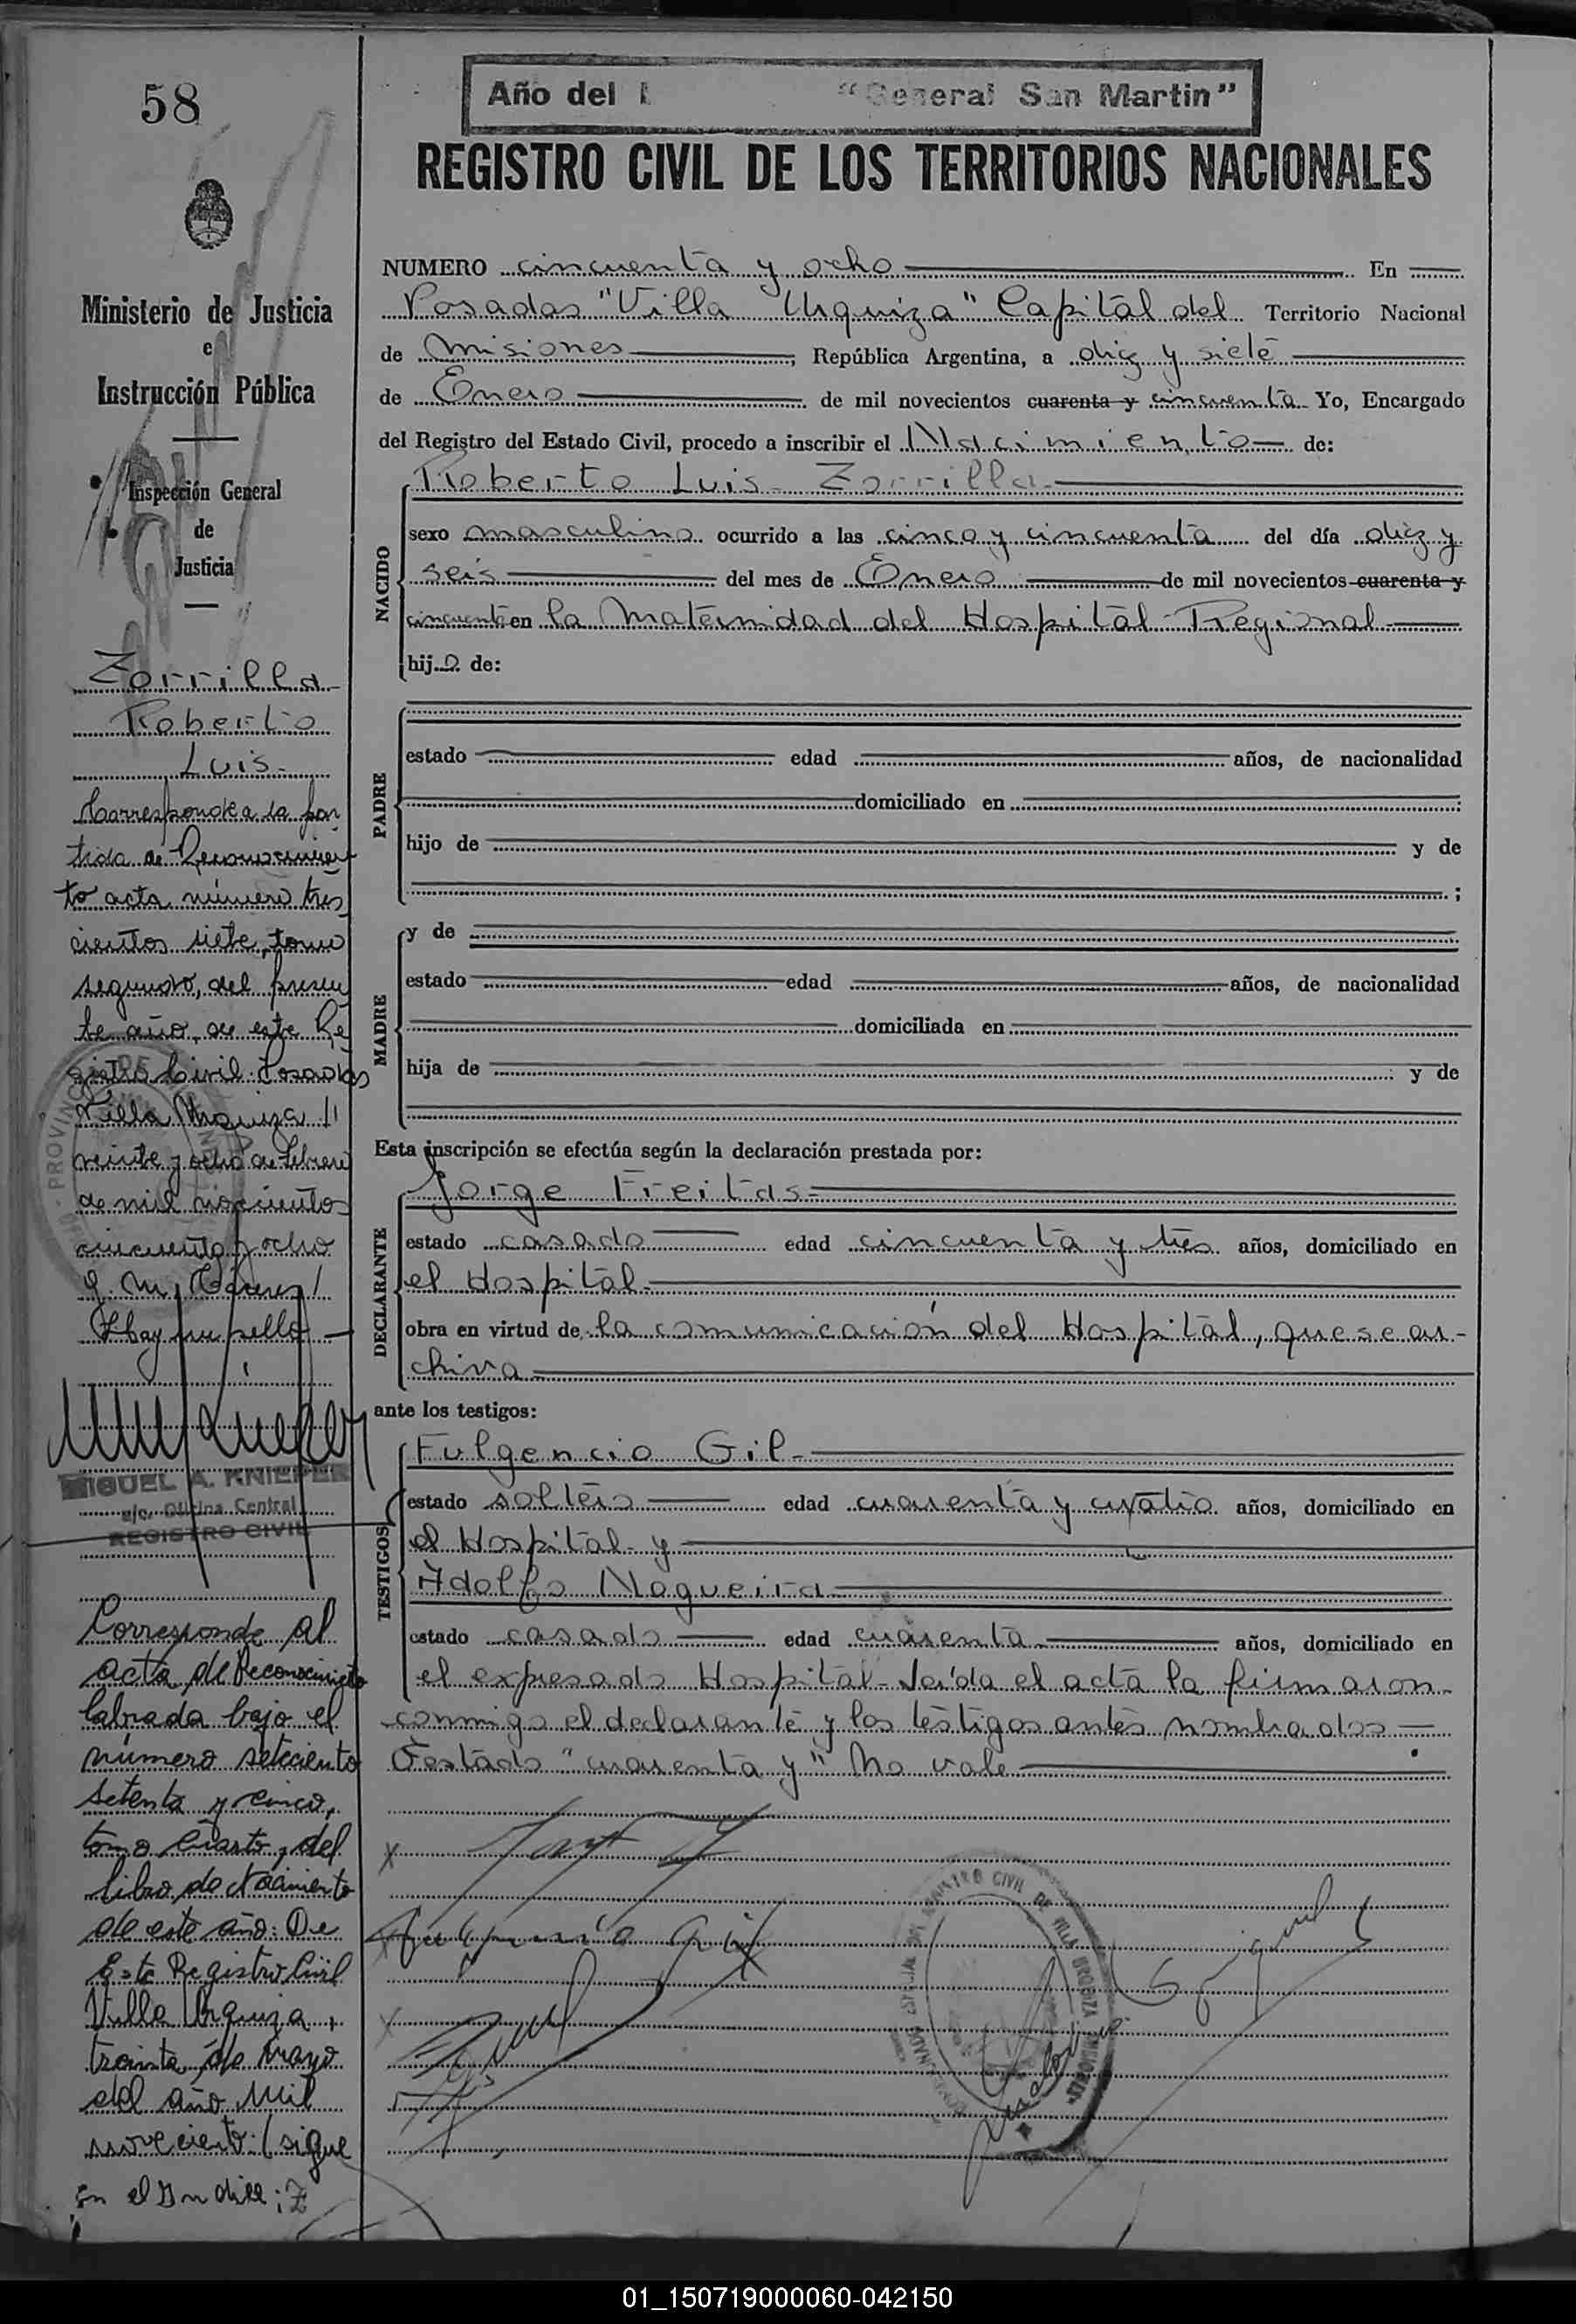 58
Año del "General San Martin"
REGISTRO CIVIL DE LOS TERRITORIOS NACIONALES
Ministerio de Justicia
e
Instrucción Pública
Inspección General
de
Justicia
Zorrilla
Roberto
Luis.
Corresponde a la par
tida de Reconocimien
to acta número tres
cientos siete, tomo
segundo, del presen
te año, de este Re
gistro Civil Posadas
Villa Urquiza
veinte y ocho de Febrero
de mil novecientos
cincuenta y ocho
Hay un sello
MIGUEL A. KNIEPER
a/c. Oficina Central
REGISTRO CIVIL
Corresponde al
acta de Reconocimiento
labrada bajo el
número setecientos
setenta y cinco,
tomo cuarto, del
libro de Nacimiento
de este año: De
Este Registro Civil
Villa Urquiza,
treinta de Mayo
del año Mil
novecientos (sigue
en el Indice: Z
NUMERO cincuenta y ocho En
Posadas "Villa Urquiza" Capital del Territorio Nacional
de Misiones, República Argentina, a diez y siete
de Enero de mil novecientos cuarenta y cincuenta Yo, Encargado
del Registro del Estado Civil, procedo a inscribir el Nacimiento de:
NACIDO
Roberto Luis Zorrilla
sexo masculino ocurrido a las cinco y cincuenta del día diez y
seis del mes de Enero de mil novecientos cuarenta y
cincuenta en la Maternidad del Hospital Regional
hijo de:
PADRE
estado edad años, de nacionalidad
domiciliado en :
hijo de y de
;
MADRE
y de
estado edad años, de nacionalidad
domiciliada en
hija de y de
Esta inscripción se efectúa según la declaración prestada por:
DECLARANTE
Jorge Freitas
estado casado edad cincuenta y tres años, domiciliado en
el Hospital
obra en virtud de la comunicación del Hospital, que se ar-
chiva
ante los testigos:
TESTIGOS
Fulgencio Gil
estado soltero edad cuarenta y cuatro años, domiciliado en
el Hospital y
Adolfo Nogueira
estado casado edad cuarenta años, domiciliado en
el expresado Hospital. Leída el acta la firmaron
conmigo el declarante y los testigos antes nombrados
Testado "cuarenta y" No vale
Fulgencio Gil
01_150719000060-042150